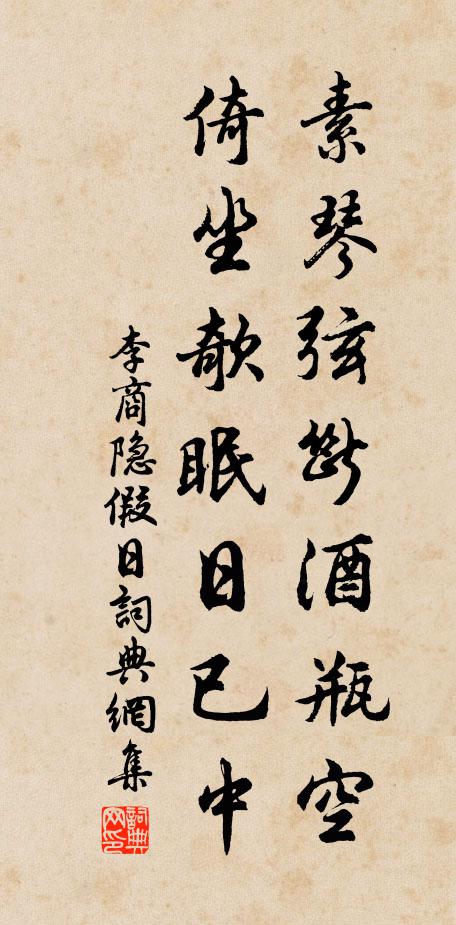 素琴弦斷酒瓶空
倚坐欹眠日已中
李商隐假日詞典網集
詞典网印